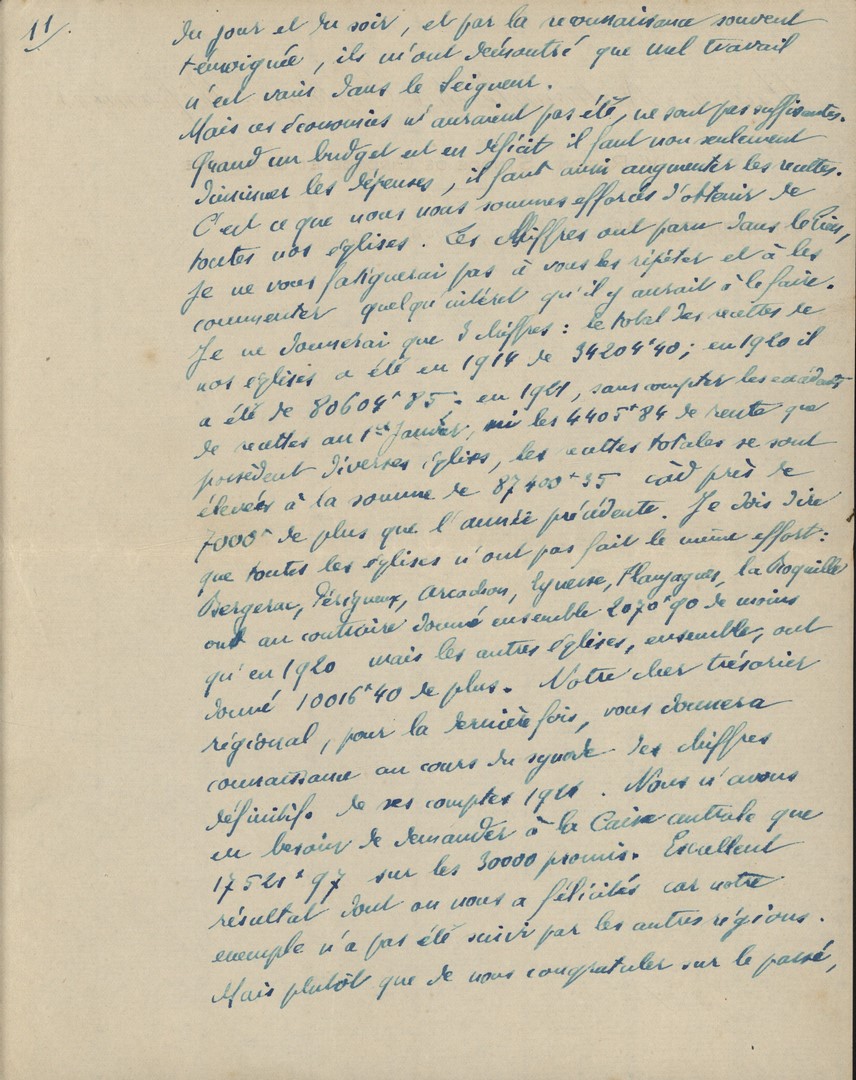 11/.
du jour et du soir, et par la reconnaissance souvent
témoignée, ils m'ont démontré que nul travail
n'est vain dans le Seigneur.
Mais ces économies n'auraient pas été, ne sont pas suffisantes.
Quand un budget est en déficit il faut non seulement
diminuer les dépenses, il faut aussi augmenter les recettes.
C'est ce que nous nous sommes efforcés d'obtenir de
toutes nos églises. Les chiffres ont paru dans le
Je ne vous fatiguerai pas à vous les répéter et à les
commenter quelqu'intérêt qu'il y aurait à le faire.
Je ne donnerai que 3 chiffres : le total des recettes de
nos églises a été en 1914 de 34204f40 ; en 1920 il
a été de 80604f85 ; en 1921, sans compter les excédents
de recettes au 1er Janvier, ni les 4405f84 de rente que
possèdent diverses églises, les recettes totales se sont
élevées à la somme de 87400f35 càd près de
7000f de plus que l'année précédente. Je dois dire
que toutes les églises n'ont pas fait le même effort :
Bergerac, Périgueux, Arcachon, Eynesse, Flaujagues, la Roquille
ont au contraire donné ensemble 2070f90 de moins
qu'en 1920 mais les autres églises, ensemble, ont
donné 10016f40 de plus. Notre cher trésorier
régional, pour la dernière fois, vous donnera
connaissance au cours du synode des chiffres
définitifs de ses comptes 1921. Nous n'avons
eu besoin de demander à la Caisse centrale que
17521f97 sur les 30000 promis. Excellent
résultat dont on nous a félicités car notre
exemple n'a pas été suivi par les autres régions.
Mais plutôt que de nous congratuler sur le passé,